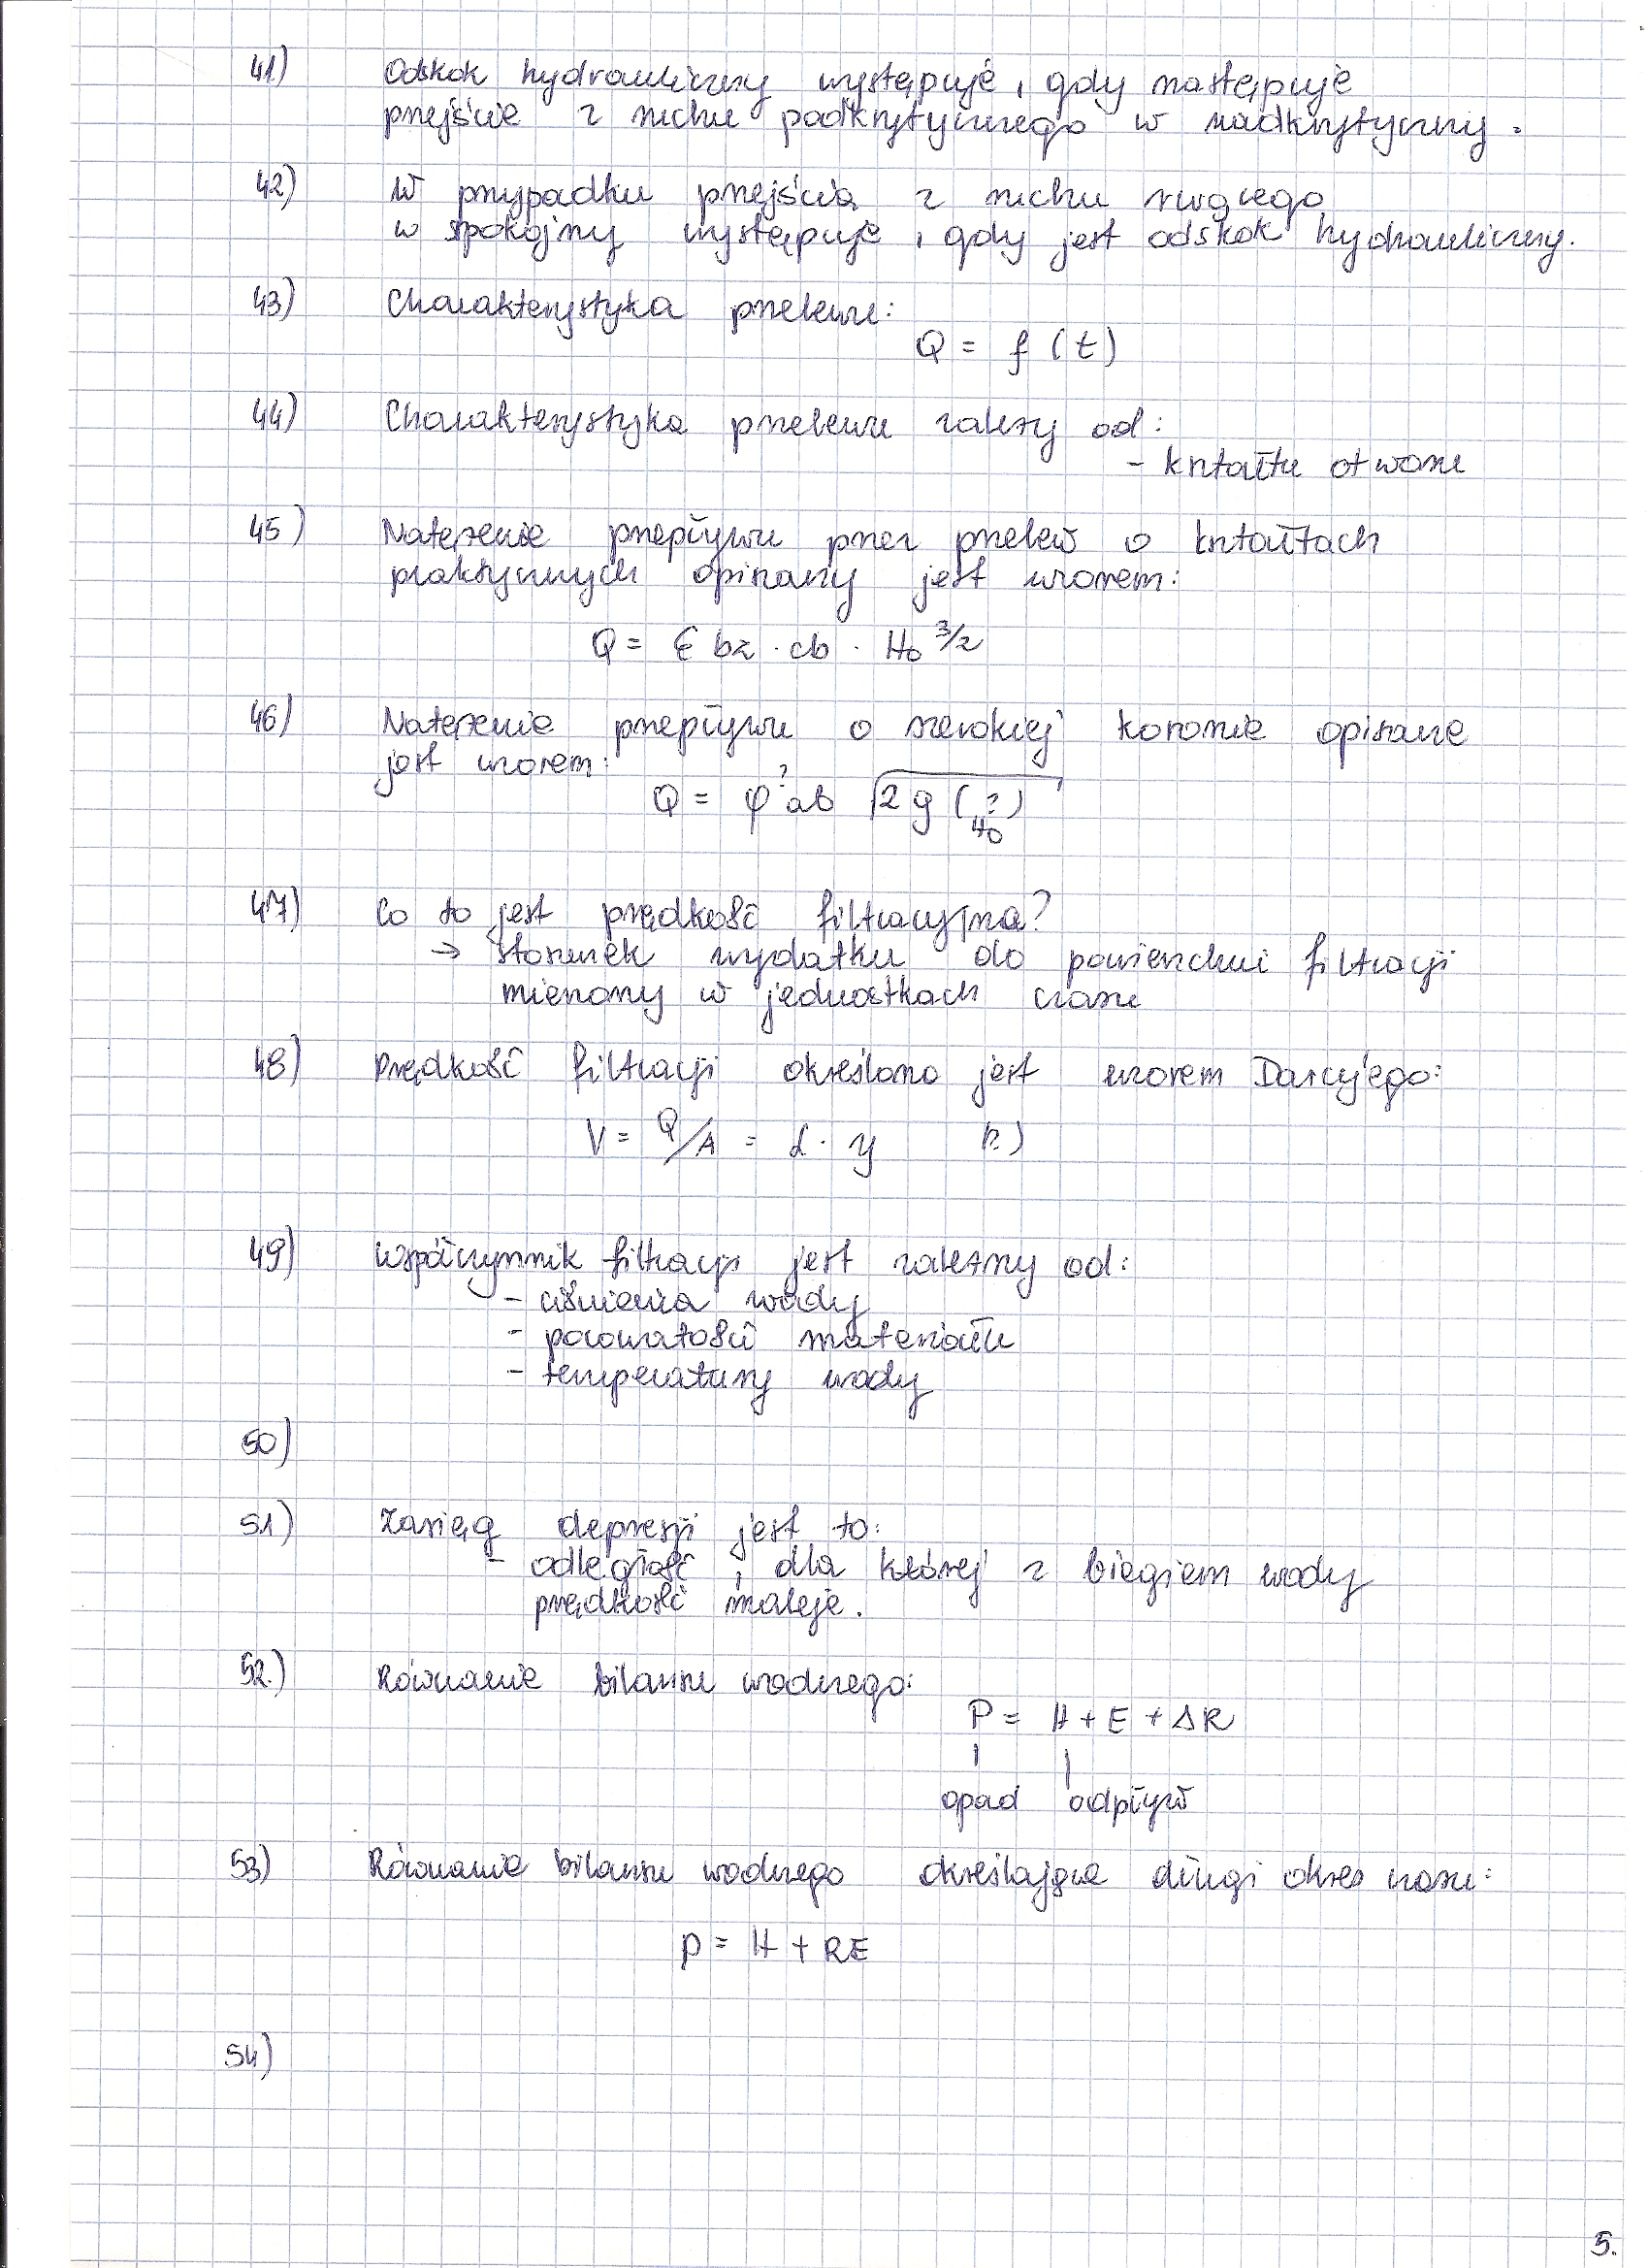 41) Odskok hydrauliczny występuje, gdy następuje
przejście z ruchu podkrytycznego w nadkrytyczny.
42) W przypadku przejścia z ruchu rwącego
w spokojny występuje, gdy jest odskok hydrauliczny.
43) Charakterystyka przelewu:
Q = f (t)
44) Charakterystyka przelewu zależy od:
- kształtu otworu
45) Natężenie przepływu przez przelew o kształtach
praktycznych opisany jest wzorem:
Q = ε bz · cb · H₀ 3/2
46) Natężenie przepływu o szerokiej koronie opisane
jest wzorem:
Q = φ ? ab √2g (?)
H₀
47) Co to jest prędkość filtracyjna?
→ stosunek wydatku do powierzchni filtracji
mierzony w jednostkach czasu
48) Prędkość filtracji określona jest wzorem Darcy'ego:
V = Q/A = L · y (?)
49) Współczynnik filtracji jest zależny od:
- ciśnienia wody
- porowatości materiału
- temperatury wody
50)
51) Zasięg depresji jest to:
- odległość, dla której z biegiem wody
prędkość maleje.
52.) Równanie bilansu wodnego:
P = H + E + ΔR
opad odpływ
53) Równanie bilansu wodnego określające długi okres czasu:
P = H + RE
54)
5.